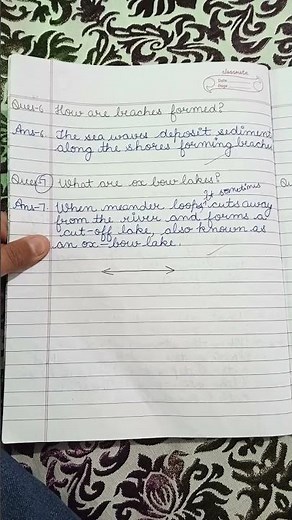 classmate
Date
Page
Ques-6 How are beaches formed?
Ans-6. The sea waves deposit sediment
along the shores forming beaches
Ques-7 What are ox bow lakes?
It sometimes
Ans-7. When meander loops cuts away
from the river and forms a
cut-off lake, also known as
an ox-bow lake.
Qu